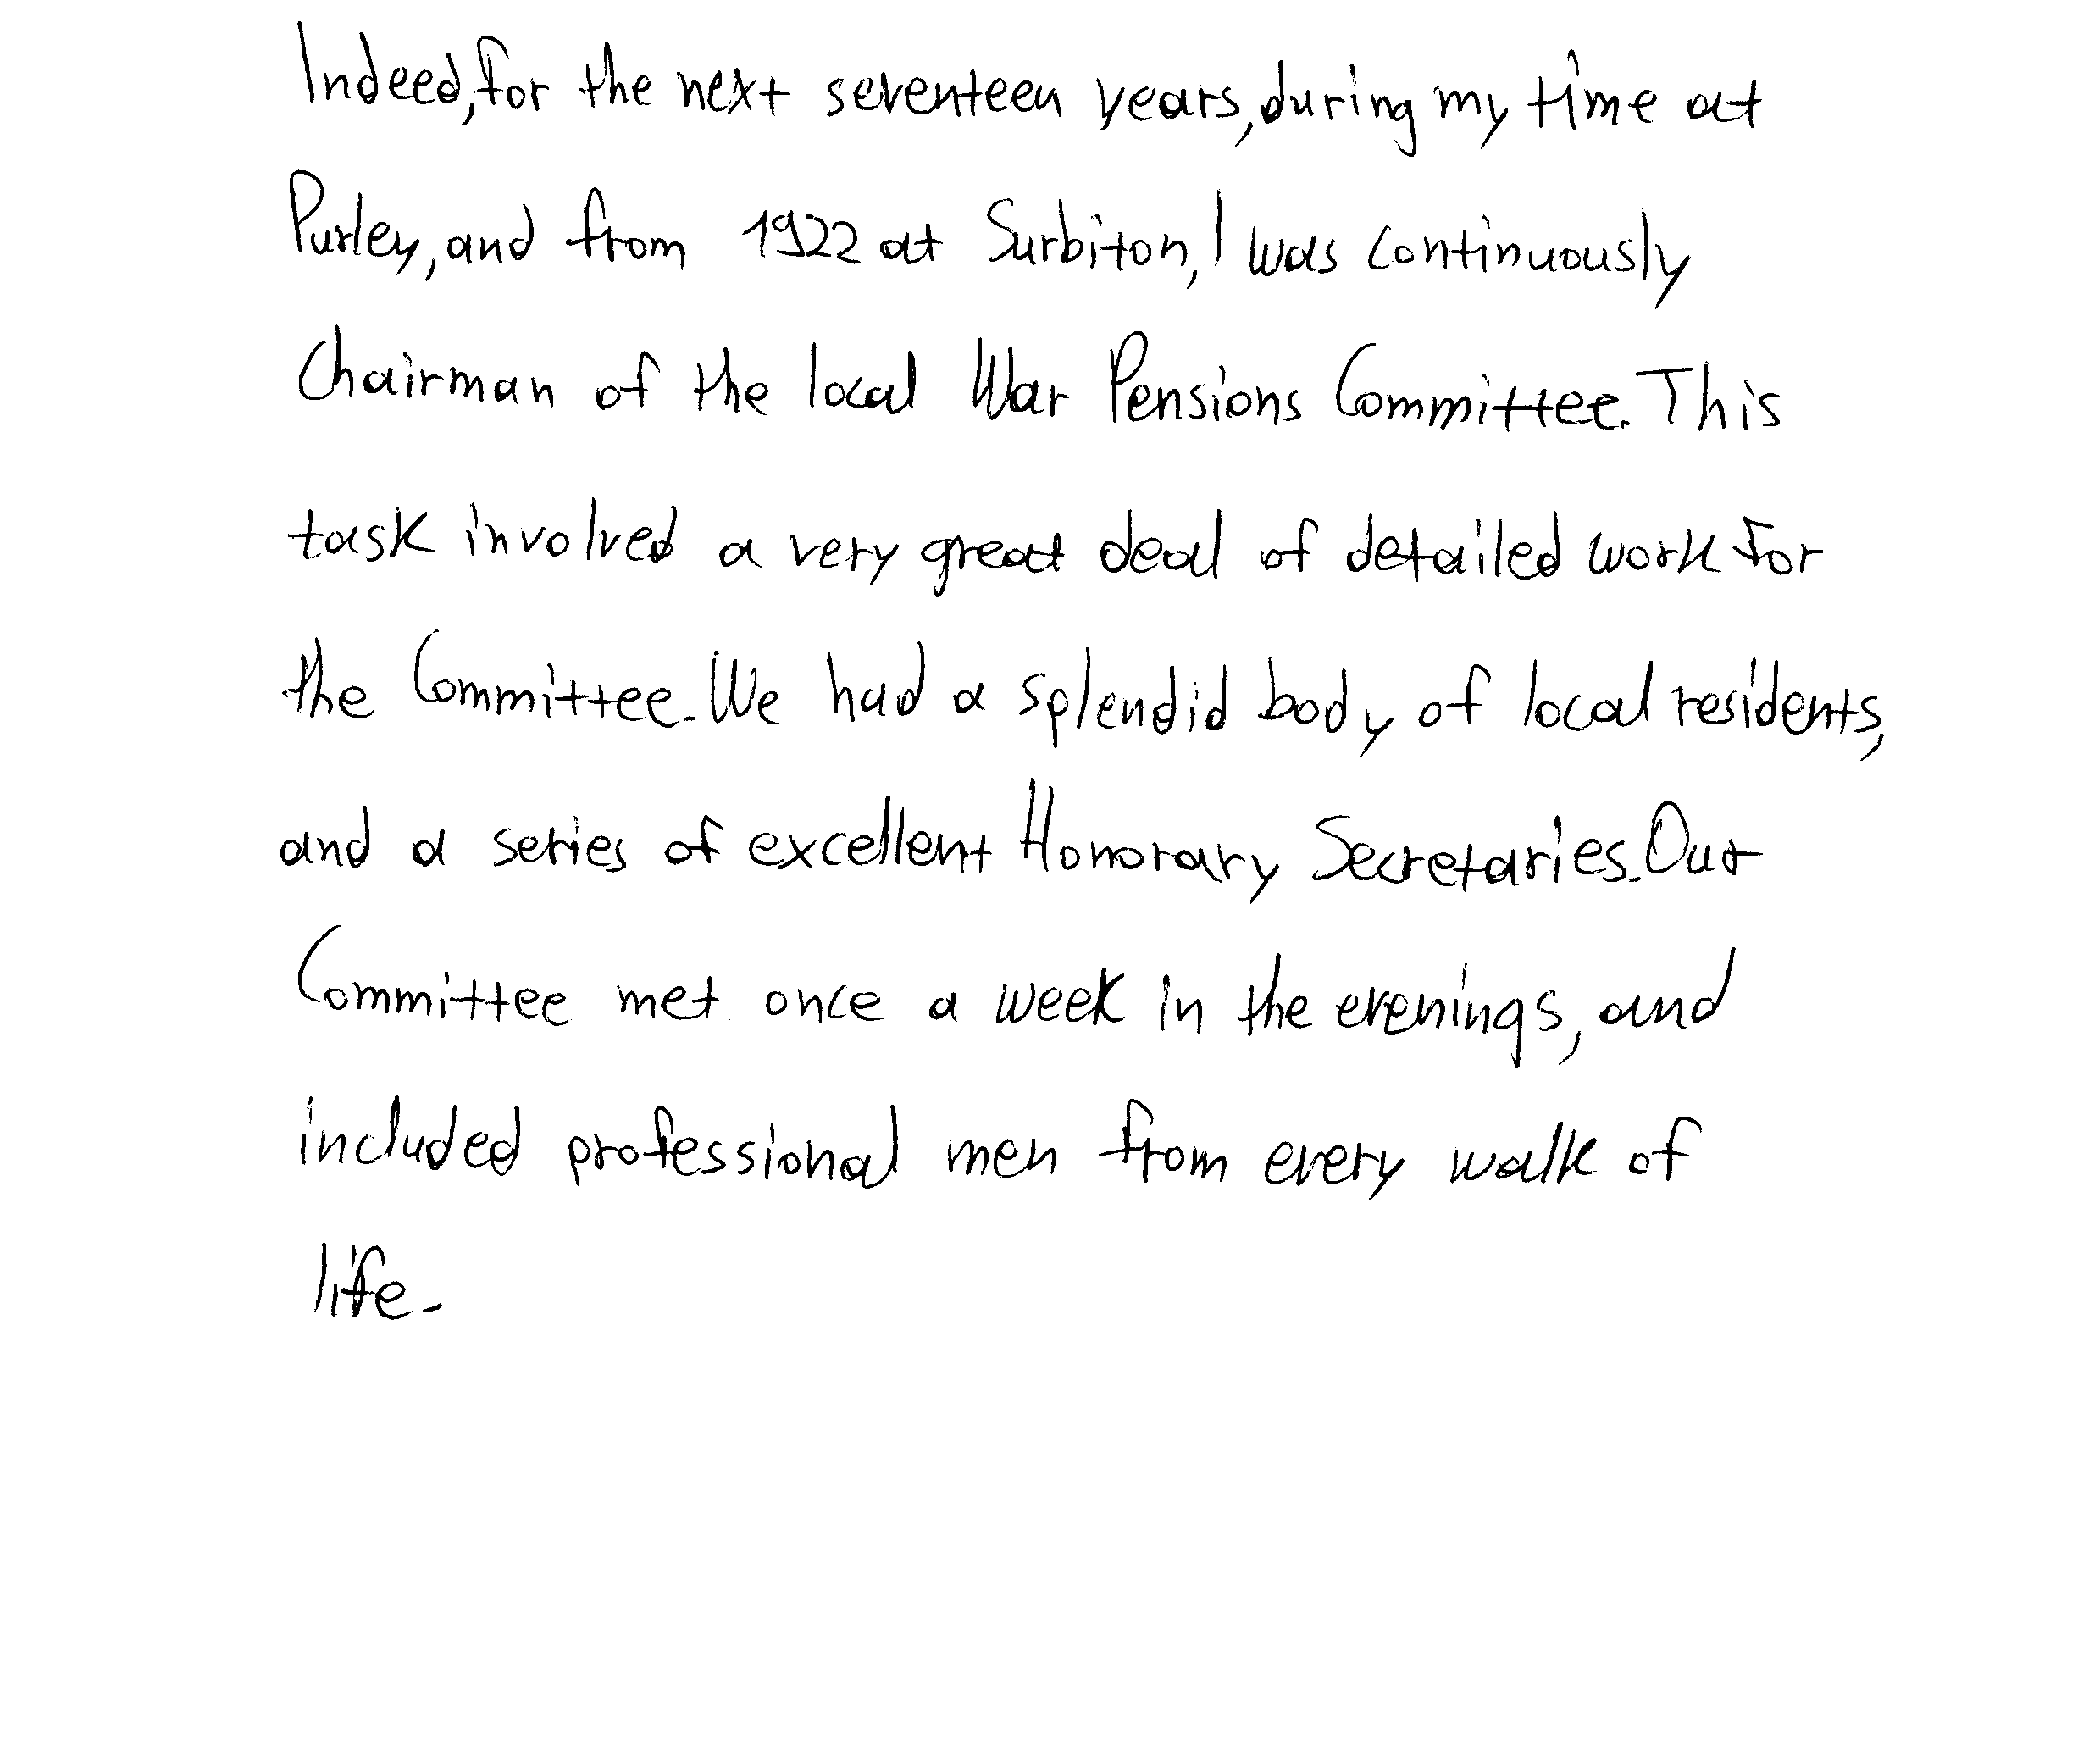 Indeed, for the next seventeen years, during my time at
Purley, and from 1922 at Surbiton, I was continuously
Chairman of the local War Pensions Committee. This
task involved a very great deal of detailed work for
the Committee. We had a splendid body of local residents,
and a series of excellent Honorary Secretaries. Our
Committee met once a week in the evenings, and
included professional men from every walk of
life.